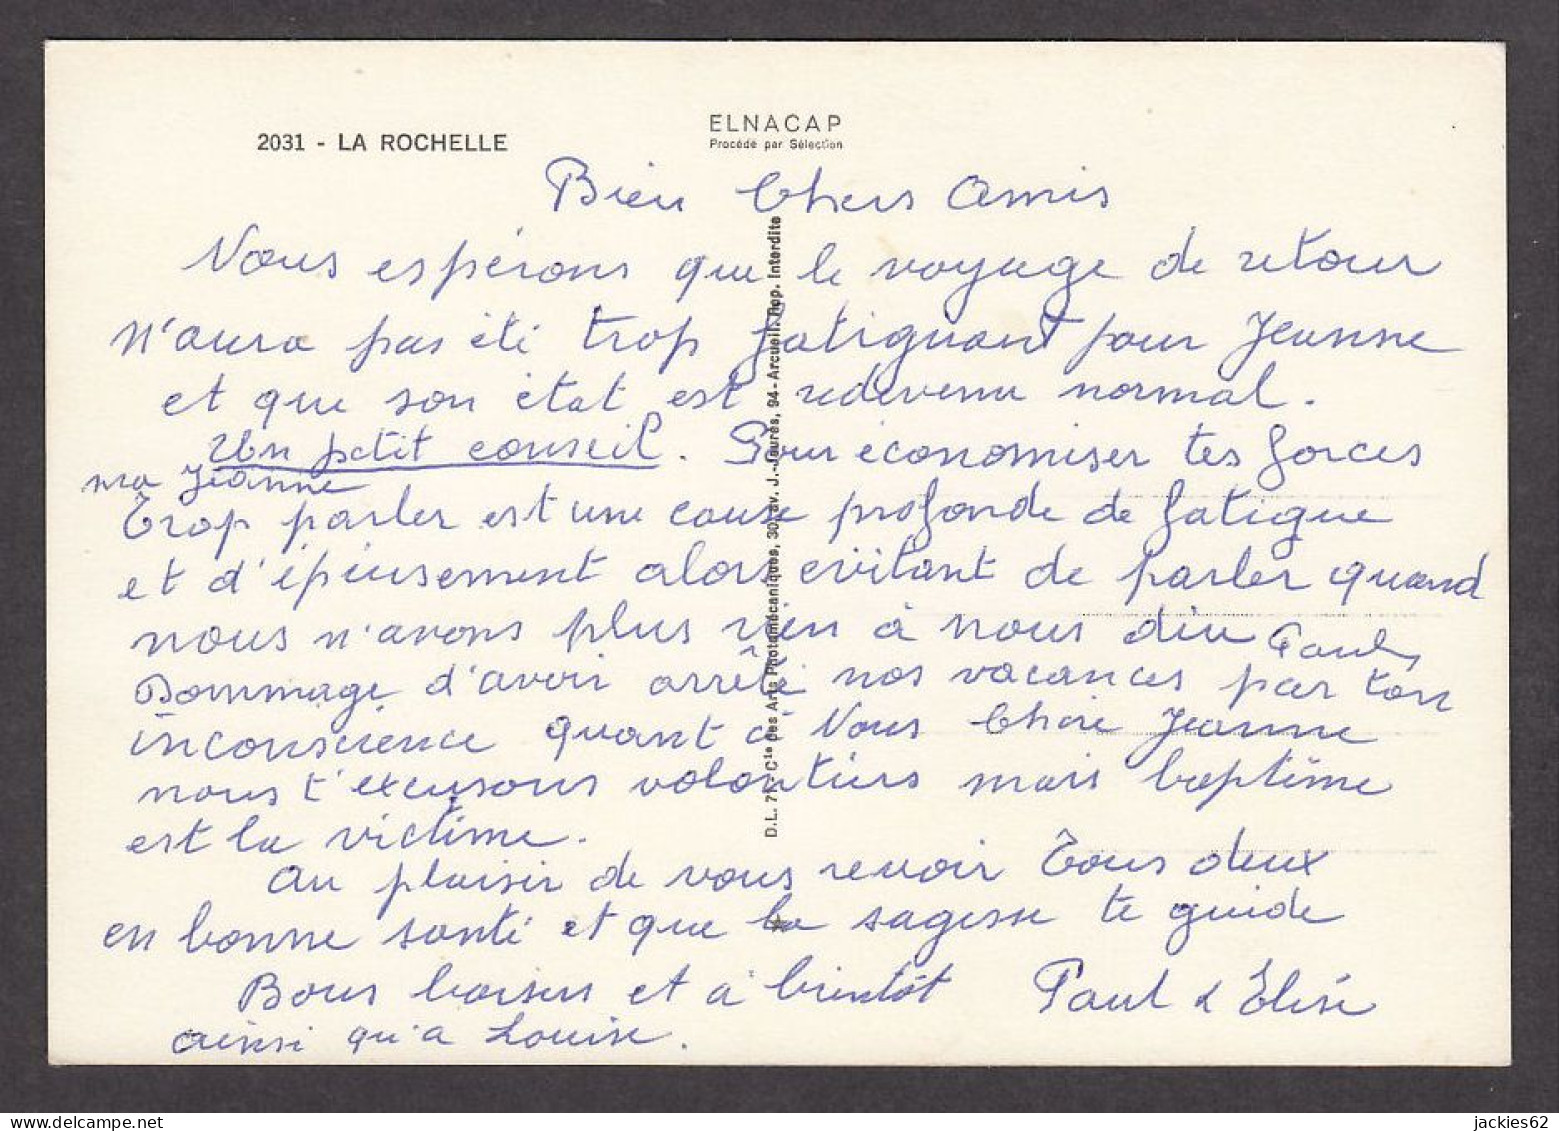 ELNACAP
Procédé par Sélection
2031 - LA ROCHELLE
Bien Chers Amis
Nous espérons que le voyage de retour
n'aura pas été trop fatiguant pour Jeanne
et que son état est redevenu normal.
Un petit conseil. Pour économiser tes forces
ma Jeanne
Trop parler est une cause profonde de fatigue
et d'épuisement alors évitant de parler quand
nous n'avons plus rien à nous dire Paul,
Dommage d'avoir arrêté nos vacances par ton
inconscience quant à Vous Chère Jeanne
nous t'excusons volontiers mais baptême
est la victime.
Au plaisir de vous revoir Tous deux
en bonne santé et que la sagesse te guide
Bons baisers et à bientôt Paul & Elise
ainsi qu'a Louise.
D.L. 71 - Cie des Arts Photomécaniques, 30, av. J.-Jaurès, 94 - Arcueil. Rep. Interdite
jackies62